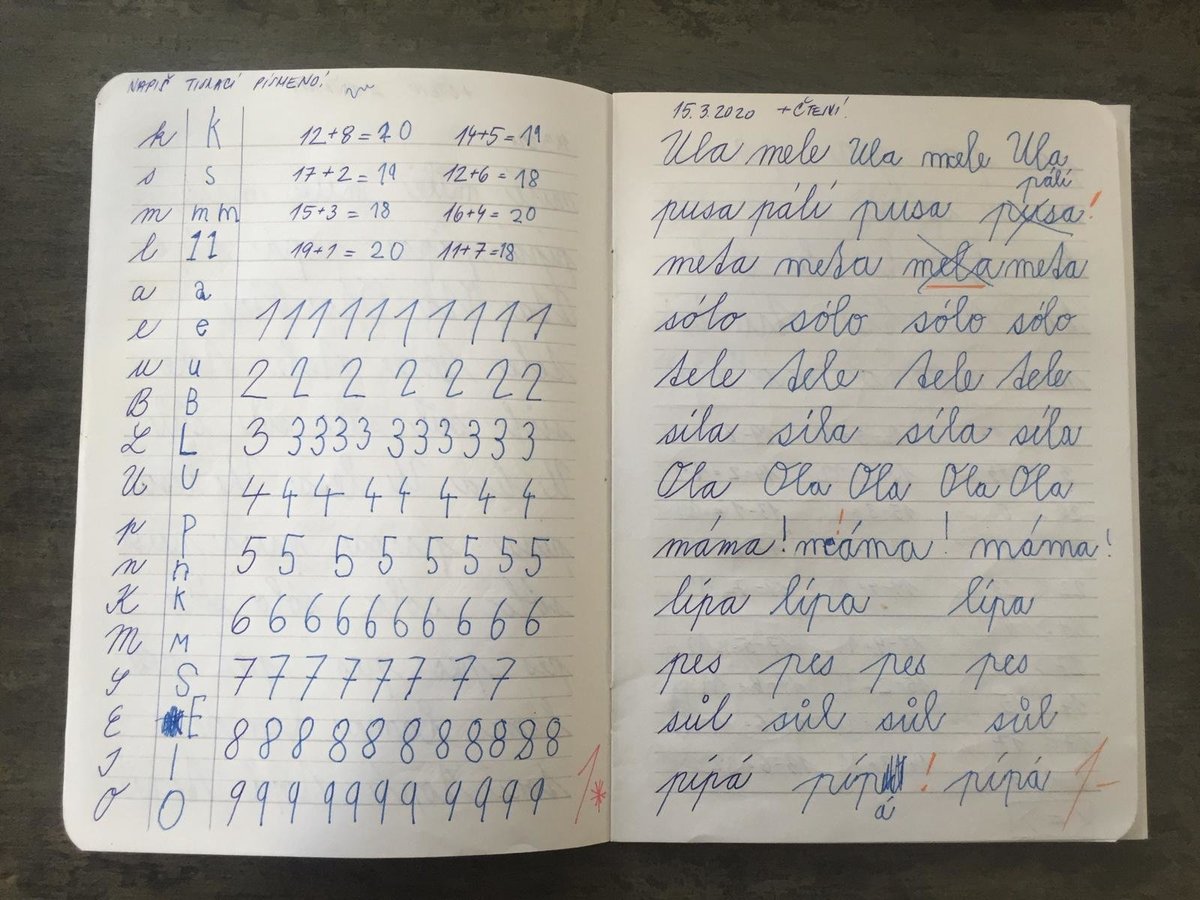 NAPIŠ TISKACÍ PÍSMENO!
k K 12+8=20 14+5=19
s s 17+2=19 12+6=18
m m m 15+3=18 16+4=20
l l l 19+1=20 11+7=18
a a
e e 1 1 1 1 1 1 1 1 1 1 1
u u 2 2 2 2 2 2 2
B B
L L 3 3 3 3 3 3 3 3 3 3 3
U U 4 4 4 4 4 4 4 4
p p
n n 5 5 5 5 5 5 5 5
K K 6 6 6 6 6 6 6 6 6 6
M M
S S 7 7 7 7 7 7 7 7 7
E E 8 8 8 8 8 8 8 8 8 8 8 8
I I
O O 9 9 9 9 9 9 9 9 9 9 9 1*
15.3.2020 +ČTENÍ!
Ula mele Ula mele Ula
pálí
pusa pálí pusa pusa!
meta meta mela meta
sólo sólo sólo sólo
tele tele tele tele
síla síla síla síla
Ola Ola Ola Ola Ola
máma! máma! máma!
lípa lípa lípa
pes pes pes pes
sůl sůl sůl sůl
pípá píp ! pípá 1-
á